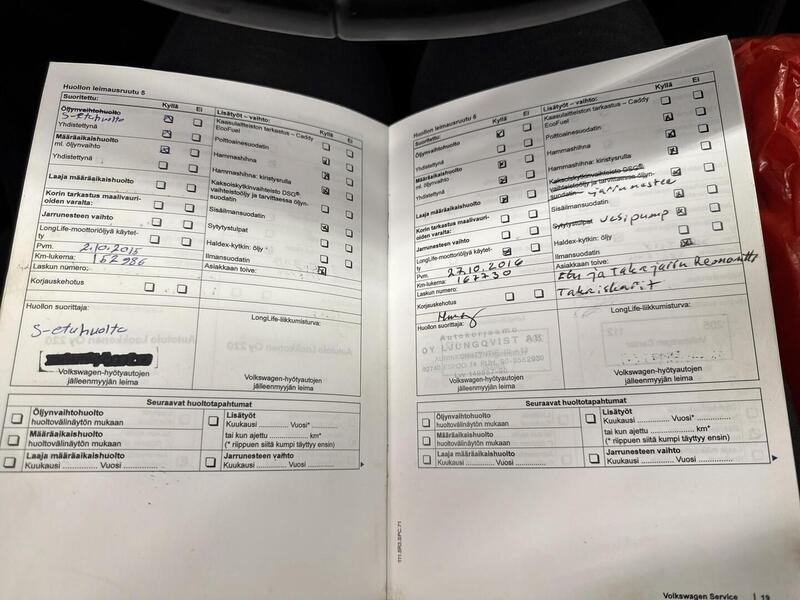 Huollon leimausruutu 5
Suoritettu: Kyllä Ei
Öljynvaihtohuolto
S-etuhuolto
Yhdistettynä
Määräaikaishuolto
ml. öljynvaihto
Yhdistettynä
Laaja määräaikaishuolto
Korin tarkastus maalivauri-
oiden varalta:
Jarrunesteen vaihto
LongLife-moottoriöljyä käytet-
ty
Pvm. 2.10.2015
Km-lukema: 152986
Laskun numero:
Korjauskehotus
Huollon suorittaja:
S-etuhuolto
Lisätyöt – vaihto: Kyllä Ei
Kaasulaitteiston tarkastus – Caddy
EcoFuel
Polttoainesuodatin
Hammashihna
Hammashihna: kiristysrulla
Kaksoiskytkinvaihteisto DSG®,
vaihteistoöljy ja tarvittaessa öljyn-
suodatin
Sisäilmansuodatin
Sytytystulpat
Haldex-kytkin: öljy
Ilmansuodatin
Asiakkaan toive:
LongLife-liikkumisturva:
Volkswagen-hyötyautojen
jälleenmyyjän leima
Volkswagen-hyötyautojen
jälleenmyyjän leima
Seuraavat huoltotapahtumat
Öljynvaihtohuolto
huoltovälinäytön mukaan
Määräaikaishuolto
huoltovälinäytön mukaan
Laaja määräaikaishuolto
Kuukausi ............. Vuosi .............
Lisätyöt
Kuukausi ............. Vuosi* .............
tai kun ajettu ............. km*
(* riippuen siitä kumpi täyttyy ensin)
Jarrunesteen vaihto
Kuukausi ............. Vuosi .............
Huollon leimausruutu 6
Suoritettu: Kyllä Ei
Öljynvaihtohuolto
Yhdistettynä
Määräaikaishuolto
ml. öljynvaihto
Yhdistettynä
Laaja määräaikaishuolto
Korin tarkastus maalivauri-
oiden varalta:
Jarrunesteen vaihto
LongLife-moottoriöljyä käytet-
ty
Pvm. 27.10.2016
Km-lukema: 167730
Laskun numero:
Korjauskehotus
Huollon suorittaja:
Autokorjaamo
OY LJUNGQVIST AB
Lisätyöt – vaihto: Kyllä Ei
Kaasulaitteiston tarkastus – Caddy
EcoFuel
Polttoainesuodatin
Hammashihna
Hammashihna: kiristysrulla
Kaksoiskytkinvaihteisto DSG®,
vaihteistoöljy ja tarvittaessa öljyn-
suodatin Jarruneste
Sisäilmansuodatin
Sytytystulpat Vesipump
Haldex-kytkin: öljy
Ilmansuodatin
Asiakkaan toive: Etu ja Takajarru Remontti
Takaiskarit
LongLife-liikkumisturva:
Volkswagen-hyötyautojen
jälleenmyyjän leima
Volkswagen-hyötyautojen
jälleenmyyjän leima
Seuraavat huoltotapahtumat
Öljynvaihtohuolto
huoltovälinäytön mukaan
Määräaikaishuolto
huoltovälinäytön mukaan
Laaja määräaikaishuolto
Kuukausi ............. Vuosi .............
Lisätyöt
Kuukausi ............. Vuosi* .............
tai kun ajettu ............. km*
(* riippuen siitä kumpi täyttyy ensin)
Jarrunesteen vaihto
Kuukausi ............. Vuosi .............
111.5R3.SPC.71
Volkswagen Service 19